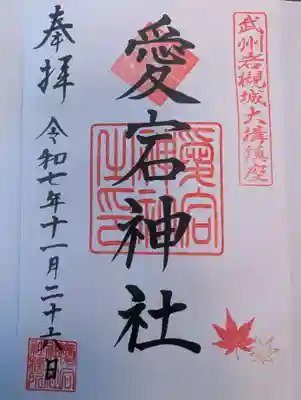 武州岩槻城大構鎮座
愛宕神社
奉拝
令和七年十一月二十六日